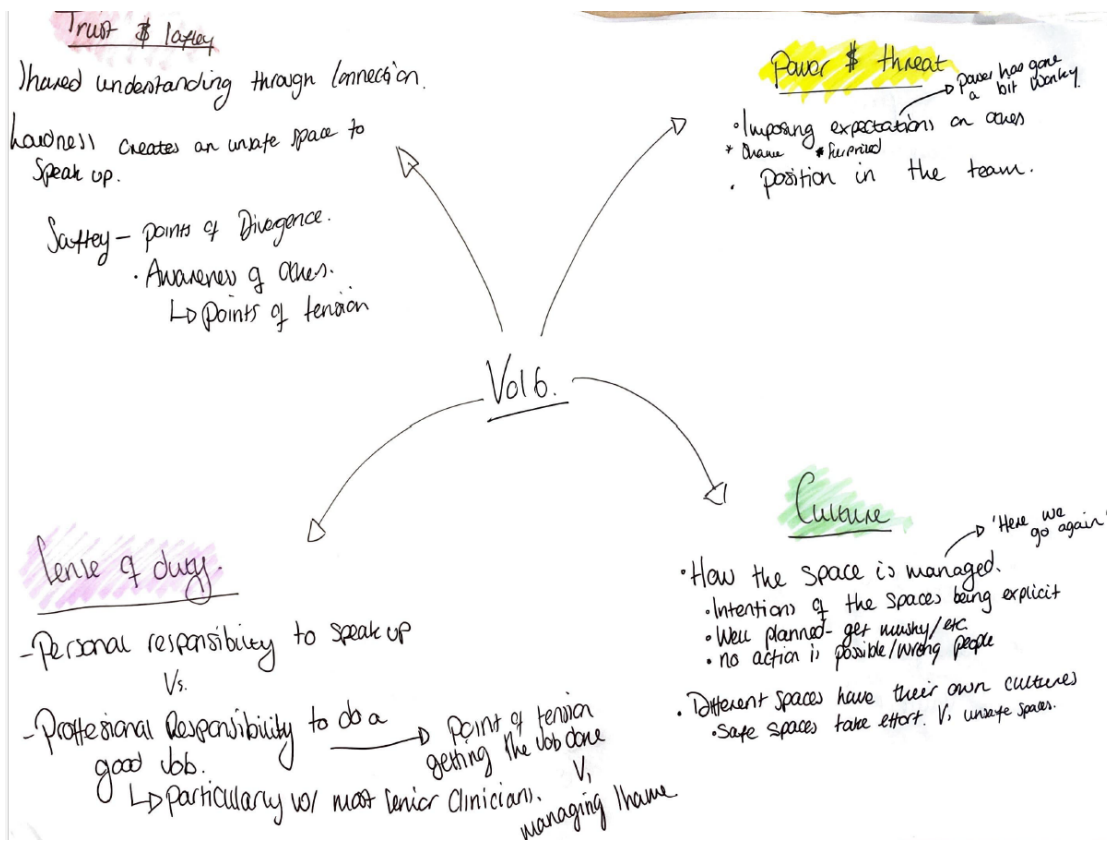 Trust & Saftey
Shared understanding through Connection.
Loudness creates an unsafe space to
Speak up.
Saftey - points of Divergence.
• Awareness of others.
↳ points of tension
Power & threat
power has gone
a bit wonky
• Imposing expectations on others
* Shame * Surprised
• position in the team.
Vol 6.
Sense of duty.
- Personal responsibility to speak up
Vs.
- Proffesional Responsibility to do a
good Job.
↳ particularly w/ most Senior Clinicians.
point of tension
getting the Job done
Vs
managing Shame
Culture
'Here we
go again'
• How the space is managed.
• Intentions of the spaces being explicit
• Well planned - get mushy/etc
• no action is possible/wrong people
• Different spaces have their own cultures
• Safe spaces take effort. Vs unsafe spaces.